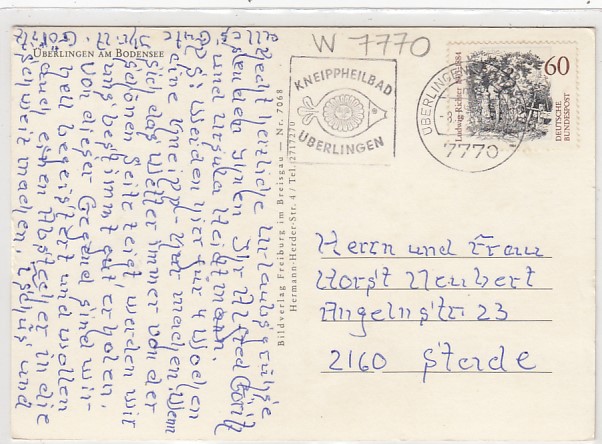 W 7770
ÜBERLINGEN AM BODENSEE
KNEIPPHEILBAD
ÜBERLINGEN
ÜBERLINGEN
7770
60
DEUTSCHE
BUNDESPOST
Ludwig Richter 1803-1884
Bildverlag Freiburg im Breisgau — Nr. 7068
Hermann-Herder-Str. 4 / Tel. 2717270
Recht herzliche Urlaubsgrüße
senden Ihnen Ihr Alfred Göritz
und Ursula Heidtmann.
P.S. Werden hier für 4 Wochen
eine Kneipp Kur machen. Wenn
sich das Wetter immer von der
schönen Seite zeigt, werden wir
uns bestimmt gut erholen.
Von dieser Gegend sind wir
hell begeistert und wollen
auch einen Abstecher in die
Schweiz machen. Tschüs und
Herrn und Frau
Horst Neubert
Angelnstr. 23
2160 Stade